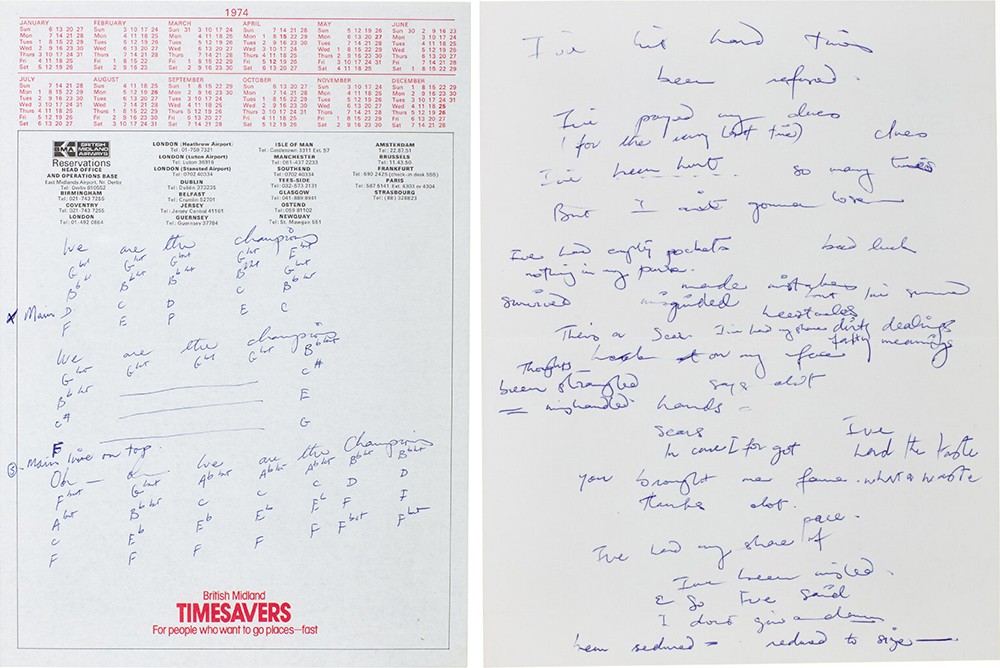 1974
JANUARY FEBRUARY MARCH APRIL MAY JUNE
Sun 6 13 20 27 Sun 3 10 17 24 Sun 31 3 10 17 24 Sun 7 14 21 28 Sun 5 12 19 26 Sun 30 2 9 16 23
Mon 7 14 21 28 Mon 4 11 18 25 Mon 4 11 18 25 Mon 1 8 15 22 29 Mon 6 13 20 27 Mon 3 10 17 24
Tues 1 8 15 22 29 Tues 5 12 19 26 Tues 5 12 19 26 Tues 2 9 16 23 30 Tues 7 14 21 28 Tues 4 11 18 25
Wed 2 9 16 23 30 Wed 6 13 20 27 Wed 6 13 20 27 Wed 3 10 17 24 Wed 1 8 15 22 29 Wed 5 12 19 26
Thurs 3 10 17 24 31 Thurs 7 14 21 28 Thurs 7 14 21 28 Thurs 4 11 18 25 Thurs 2 9 16 23 30 Thurs 6 13 20 27
Fri 4 11 18 25 Fri 1 8 15 22 Fri 1 8 15 22 29 Fri 5 12 19 26 Fri 3 10 17 24 31 Fri 7 14 21 28
Sat 5 12 19 26 Sat 2 9 16 23 Sat 2 9 16 23 30 Sat 6 13 20 27 Sat 4 11 18 25 Sat 1 8 15 22 29
JULY AUGUST SEPTEMBER OCTOBER NOVEMBER DECEMBER
Sun 7 14 21 28 Sun 4 11 18 25 Sun 1 8 15 22 29 Sun 6 13 20 27 Sun 3 10 17 24 Sun 1 8 15 22 29
Mon 1 8 15 22 29 Mon 5 12 19 26 Mon 2 9 16 23 30 Mon 7 14 21 28 Mon 4 11 18 25 Mon 2 9 16 23 30
Tues 2 9 16 23 30 Tues 6 13 20 27 Tues 3 10 17 24 Tues 1 8 15 22 29 Tues 5 12 19 26 Tues 3 10 17 24 31
Wed 3 10 17 24 31 Wed 7 14 21 28 Wed 4 11 18 25 Wed 2 9 16 23 30 Wed 6 13 20 27 Wed 4 11 18 25
Thurs 4 11 18 25 Thurs 1 8 15 22 29 Thurs 5 12 19 26 Thurs 3 10 17 24 31 Thurs 7 14 21 28 Thurs 5 12 19 26
Fri 5 12 19 26 Fri 2 9 16 23 30 Fri 6 13 20 27 Fri 4 11 18 25 Fri 1 8 15 22 29 Fri 6 13 20 27
Sat 6 13 20 27 Sat 3 10 17 24 31 Sat 7 14 21 28 Sat 5 12 19 26 Sat 2 9 16 23 30 Sat 7 14 21 28
BMA BRITISH MIDLAND AIRWAYS
Reservations
HEAD OFFICE
AND OPERATIONS BASE
East Midlands Airport, Nr. Derby
Tel: Derby 810552
BIRMINGHAM
Tel: 021-743 7255
COVENTRY
Tel: 021-743 7255
LONDON
Tel: 01-492 0864
LONDON (Heathrow Airport)
Tel: 01-759 7321
LONDON (Luton Airport)
Tel: Luton 36918
LONDON (Stansted Airport)
Tel: 0702 40334
DUBLIN
Tel: Dublin 373235
BELFAST
Tel: Crumlin 52701
JERSEY
Tel: Jersey Central 41161
GUERNSEY
Tel: Guernsey 37784
ISLE OF MAN
Tel: Castletown 3311 Ext. 57
MANCHESTER
Tel: 061-437 2233
SOUTHEND
Tel: 0702 40334
TEES-SIDE
Tel: 032-573 2131
GLASGOW
Tel: 041-889 8941
OSTEND
Tel: 059 81102
NEWQUAY
Tel: St. Mawgan 551
AMSTERDAM
Tel: 22.87.51
BRUSSELS
Tel: 11.43.50
FRANKFURT
Tel: 690 2425 (check-in desk 555)
PARIS
Tel: 587 5141 Ext. 4303 or 4304
STRASBOURG
Tel: (88) 328823
We are the champions
G bot G bot G bot Bb bot E bot
Bb bot Bb bot Bb bot C Bb bot
X Main D C D E C
F E F
We are the champions
G bot G bot G bot G bot Bb bot
Bb bot C#
C# E
F G
S - Main line on top.
Oh — We are the Champions
F bot G bot Ab bot Ab bot Ab bot Bb bot Bb bot
Ab bot Bb bot C C C D D
C Eb Eb Eb Eb F F
F F F F F F bot F bot
British Midland
TIMESAVERS
For people who want to go places—fast
I've hit hard times
been refused.
I've payed my dues
(for the very last time) clues
I've been hurt so many times
But I ain't gonna lose
I've had empty pockets bad luck
nothing in my purse.
made mistakes
survived misguided but I've survived
heartaches
There's a Scar I've had my share dirty dealings
Thoughts look at on my face falty meanings
been strangled says alot
= mishandled hands -
Scars I've
In case I forgot had the taste
you brought me fame. what a waste
thanks alot.
pace.
I've had my share of
I've been misled.
& So I've said
I dont give a damn
been seduced = reduced to size —.